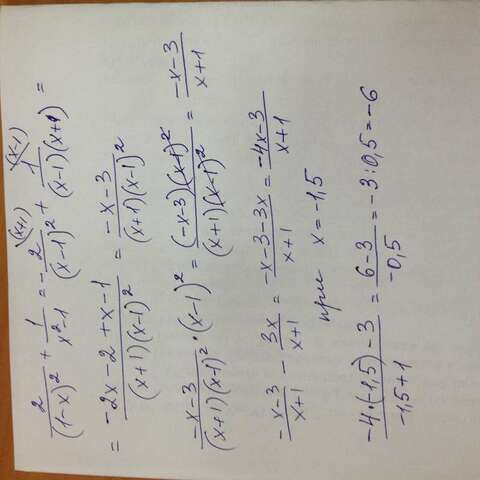 2/(1-x)^2 + 1/(x^2-1) = -2^(x+1)/(x-1)^2 + 1^(x-1)/((x-1)(x+1)) =
= (-2x-2+x-1)/((x+1)(x-1)^2) = (-x-3)/((x+1)(x-1)^2)
(-x-3)/((x+1)(x-1)^2) · (x-1)^2 = ((-x-3)(x-1)^2)/((x+1)(x-1)^2) = (-x-3)/(x+1)
(-x-3)/(x+1) - 3x/(x+1) = (-x-3-3x)/(x+1) = (-4x-3)/(x+1)
при x = -1,5
(-4·(-1,5)-3)/(-1,5+1) = (6-3)/(-0,5) = -3:0,5 = -6